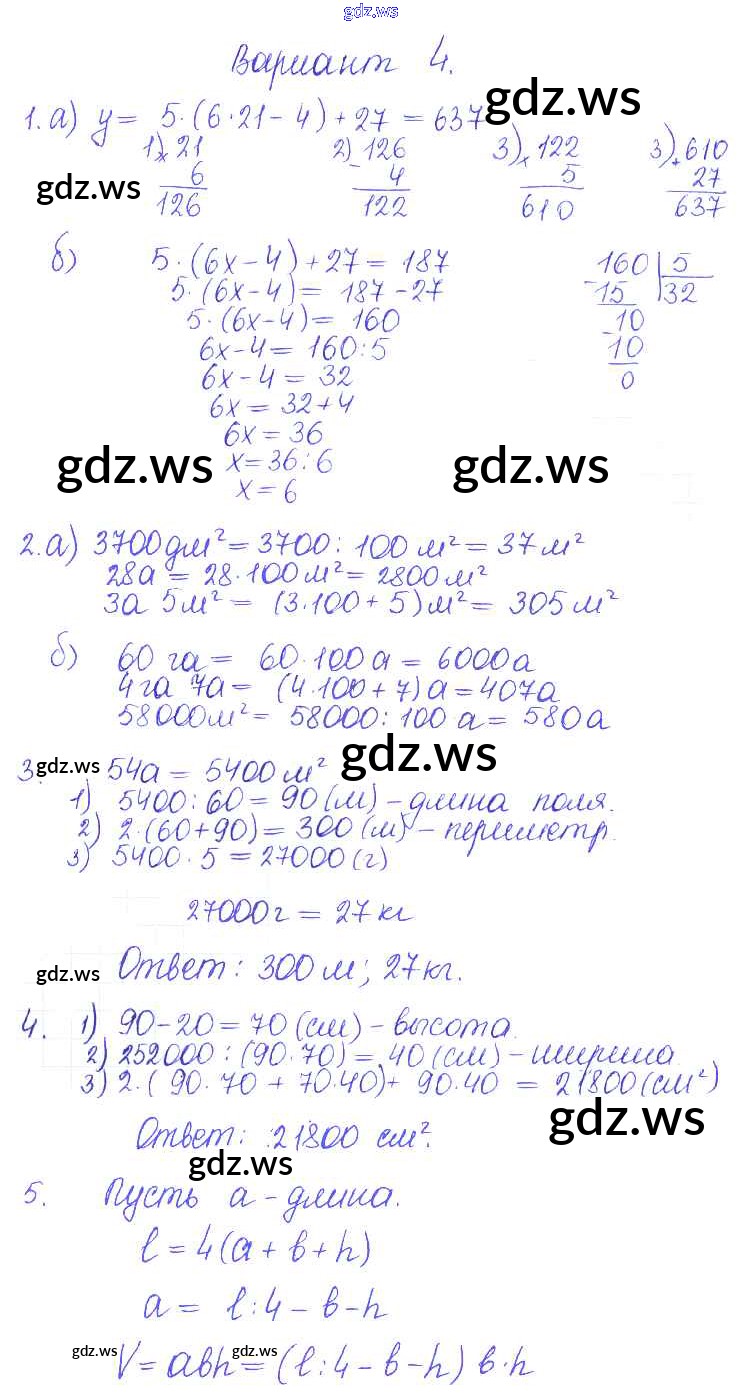 gdz.ws
Вариант 4.
1. а) y = 5·(6·21 - 4) + 27 = 637
gdz.ws
1) × 21 2) - 126 3) × 122 3) + 610
6 4 5 27
126 122 610 637
gdz.ws
б) 5·(6x - 4) + 27 = 187
5·(6x - 4) = 187 - 27
5·(6x - 4) = 160
6x - 4 = 160:5
6x - 4 = 32
6x = 32 + 4
6x = 36
x = 36:6
x = 6
160 | 5
- 15 | 32
10
- 10
0
gdz.ws gdz.ws
2. а) 3700 дм² = 3700 : 100 м² = 37 м²
28а = 28·100 м² = 2800 м²
3а 5м² = (3·100 + 5) м² = 305 м²
б) 60 га = 60·100 а = 6000 а
4 га 7а = (4·100 + 7) а = 407а
58000 м² = 58000 : 100 а = 580 а
gdz.ws gdz.ws
3. 54а = 5400 м²
1) 5400 : 60 = 90 (м) - длина поля.
2) 2·(60+90) = 300 (м) - периметр.
3) 5400·5 = 27000 (г)
27000 г = 27 кг
gdz.ws
Ответ: 300 м; 27 кг.
4. 1) 90 - 20 = 70 (см) - высота.
2) 252000 : (90·70) = 40 (см) - ширина.
3) 2·(90·70 + 70·40) + 90·40 = 21800 (см²)
gdz.ws
Ответ: 21800 см².
gdz.ws
5. Пусть а - длина.
l = 4(a + b + h)
a = l:4 - b - h
gdz.ws gdz.ws
V = abh = (l:4 - b - h) b·h